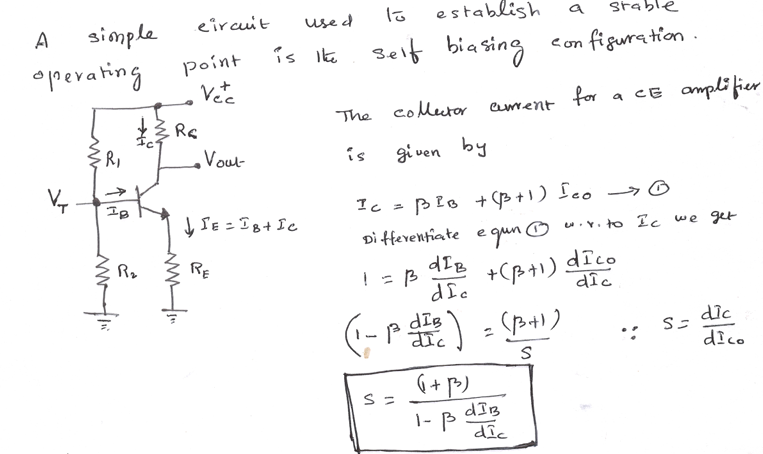 A simple circuit used to establish a stable
operating point is the self biasing configuration.
Vcc+
Ic
Rc
R1
Vout
VT
IB
IE = IB + Ic
R2
RE
The collector current for a CE amplifier
is given by
Ic = βIB + (β+1) Ico → ①
Differentiate equn ① w.r.to Ic we get
1 = β dIB/dIc + (β+1) dIco/dIc
(1 - β dIB/dIc) = (β+1)/S ∵ S = dIc/dIco
S = (1+β)/(1 - β dIB/dIc)